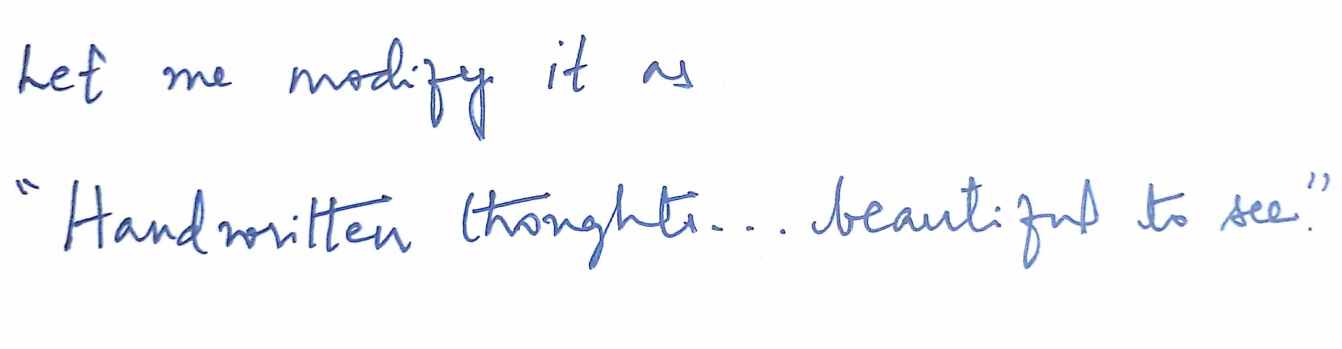 Let me modify it as
"Handwritten thoughts... beautiful to see."